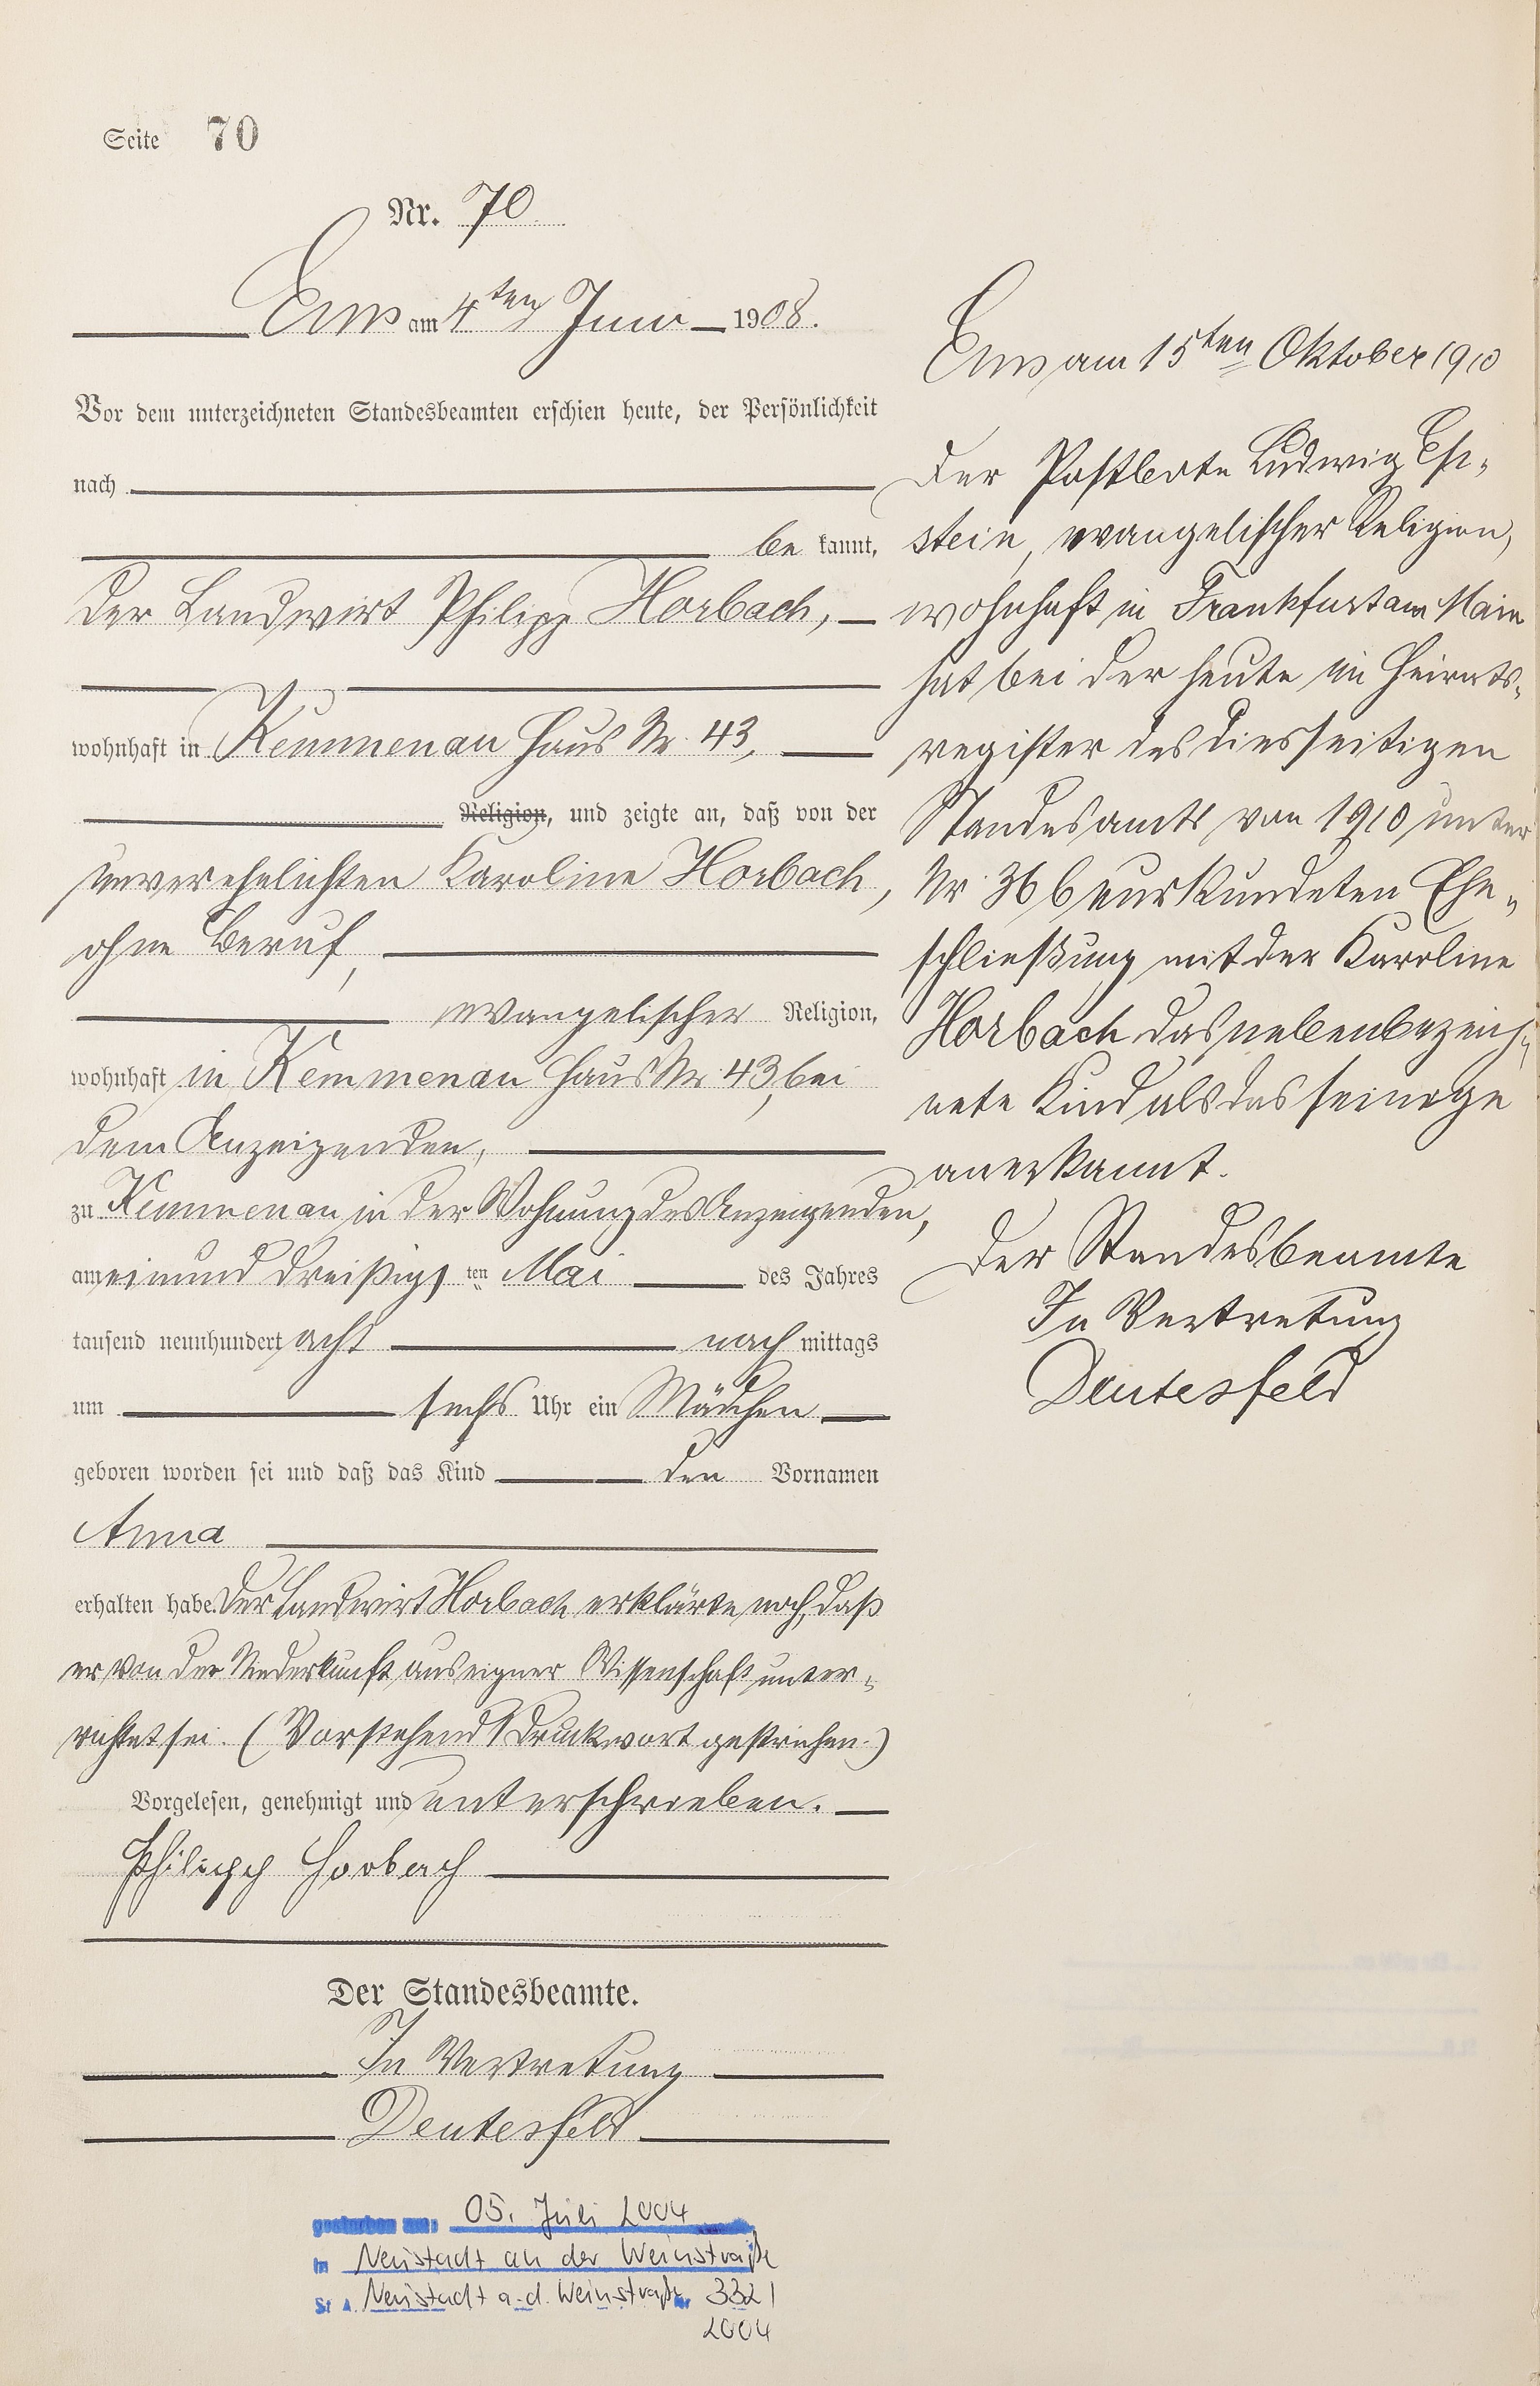 Seite 70
Nr. 70
Ems am 4ten Juni 1908.
Vor dem unterzeichneten Standesbeamten erschien heute, der Persönlichkeit
nach
be kannt,
der Landwirt Philipp Horbach,
wohnhaft in Kemmenau Haus Nr. 43,
Religion, und zeigte an, daß von der
unverehelichten Karoline Horbach,
ohne Beruf,
evangelischer Religion,
wohnhaft in Kemmenau Haus Nr. 43, bei
dem Anzeigenden,
zu Kemmenau in der Wohnung des Anzeigenden,
am einund dreißigsten Mai des Jahres
tausend neunhundert acht nach mittags
um sechs Uhr ein Mädchen
geboren worden sei und daß das Kind den Vornamen
Anna
erhalten habe. Der Landwirt Horbach erklärte noch, daß
er von der Niederkunft aus eigner Wissenschaft unter-
richtet sei. (Vorstehend 1 Druckwort gestrichen.)
Vorgelesen, genehmigt und unterschrieben.
Philipp Horbach
Der Standesbeamte.
In Vertretung
Deutesfeld
gestorben am: 05. Juli 2004
in Neustadt an der Weinstraße
St A. Neustadt a.d. Weinstraße Nr 332/
2004
Ems am 15ten Oktober 1910
Der Postbote Ludwig Ep-
stein, evangelischer Religion,
wohnhaft in Frankfurt am Main
hat bei der heute im Heirats-
register des diesseitigen
Standesamts von 1910 unter
Nr 36 beurkundeten Ehe-
schließung mit der Karoline
Horbach das nebenbezeich-
nete Kind als das seinige
anerkannt.
Der Standesbeamte
In Vertretung
Deutesfeld